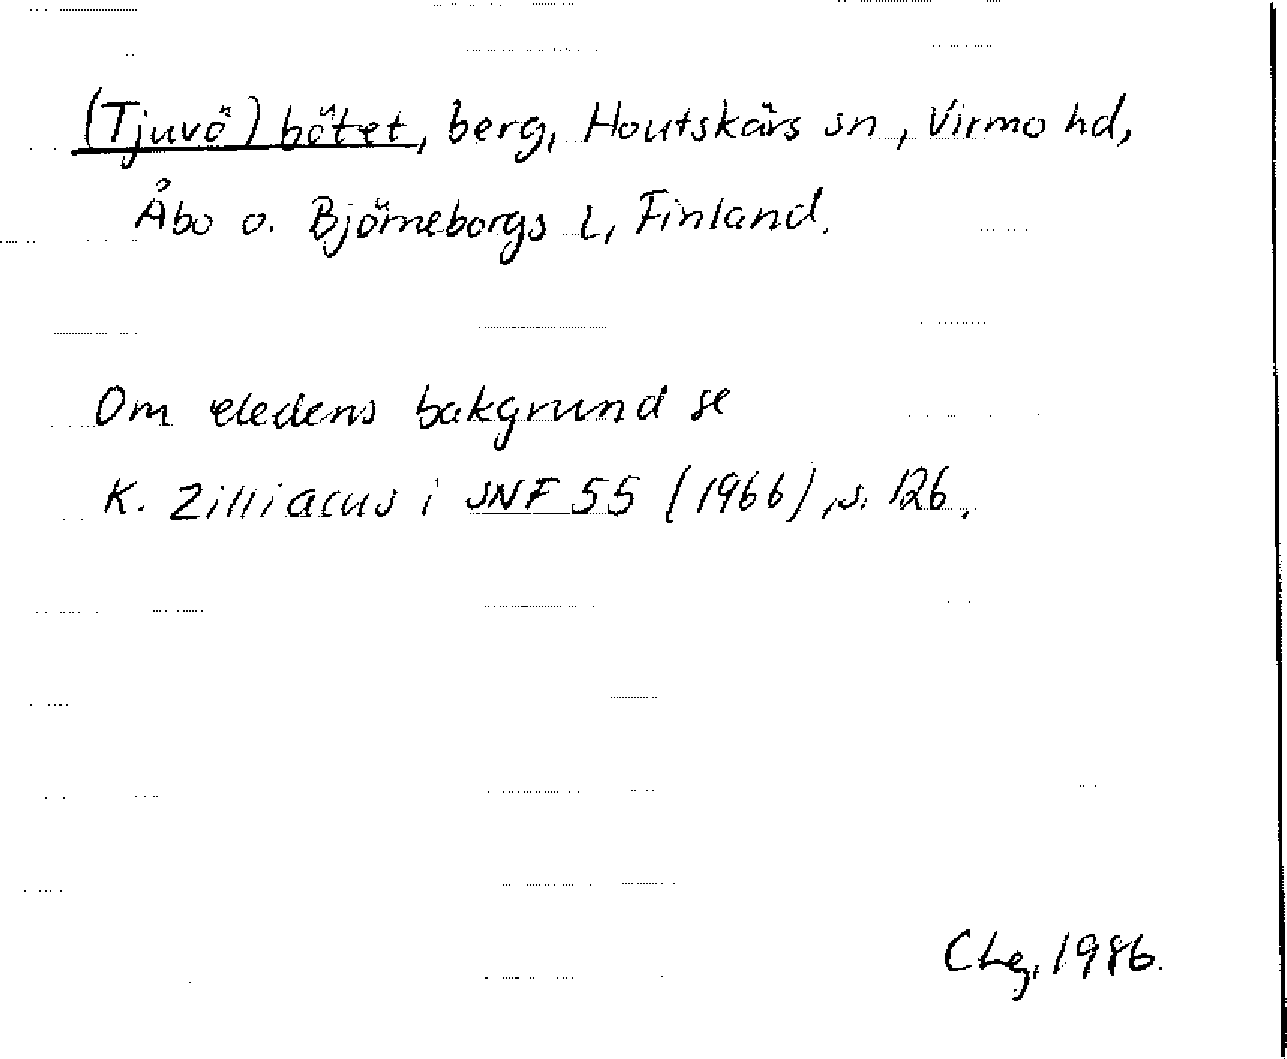 (Tjuvö) bötet, berg, Houtskärs sn, Virmo hd,
Åbo o. Björneborgs l, Finland.
Om eledens bakgrund se
K. Zilliacus i SNF 55 (1966), s. 126.
CLg, 1986.